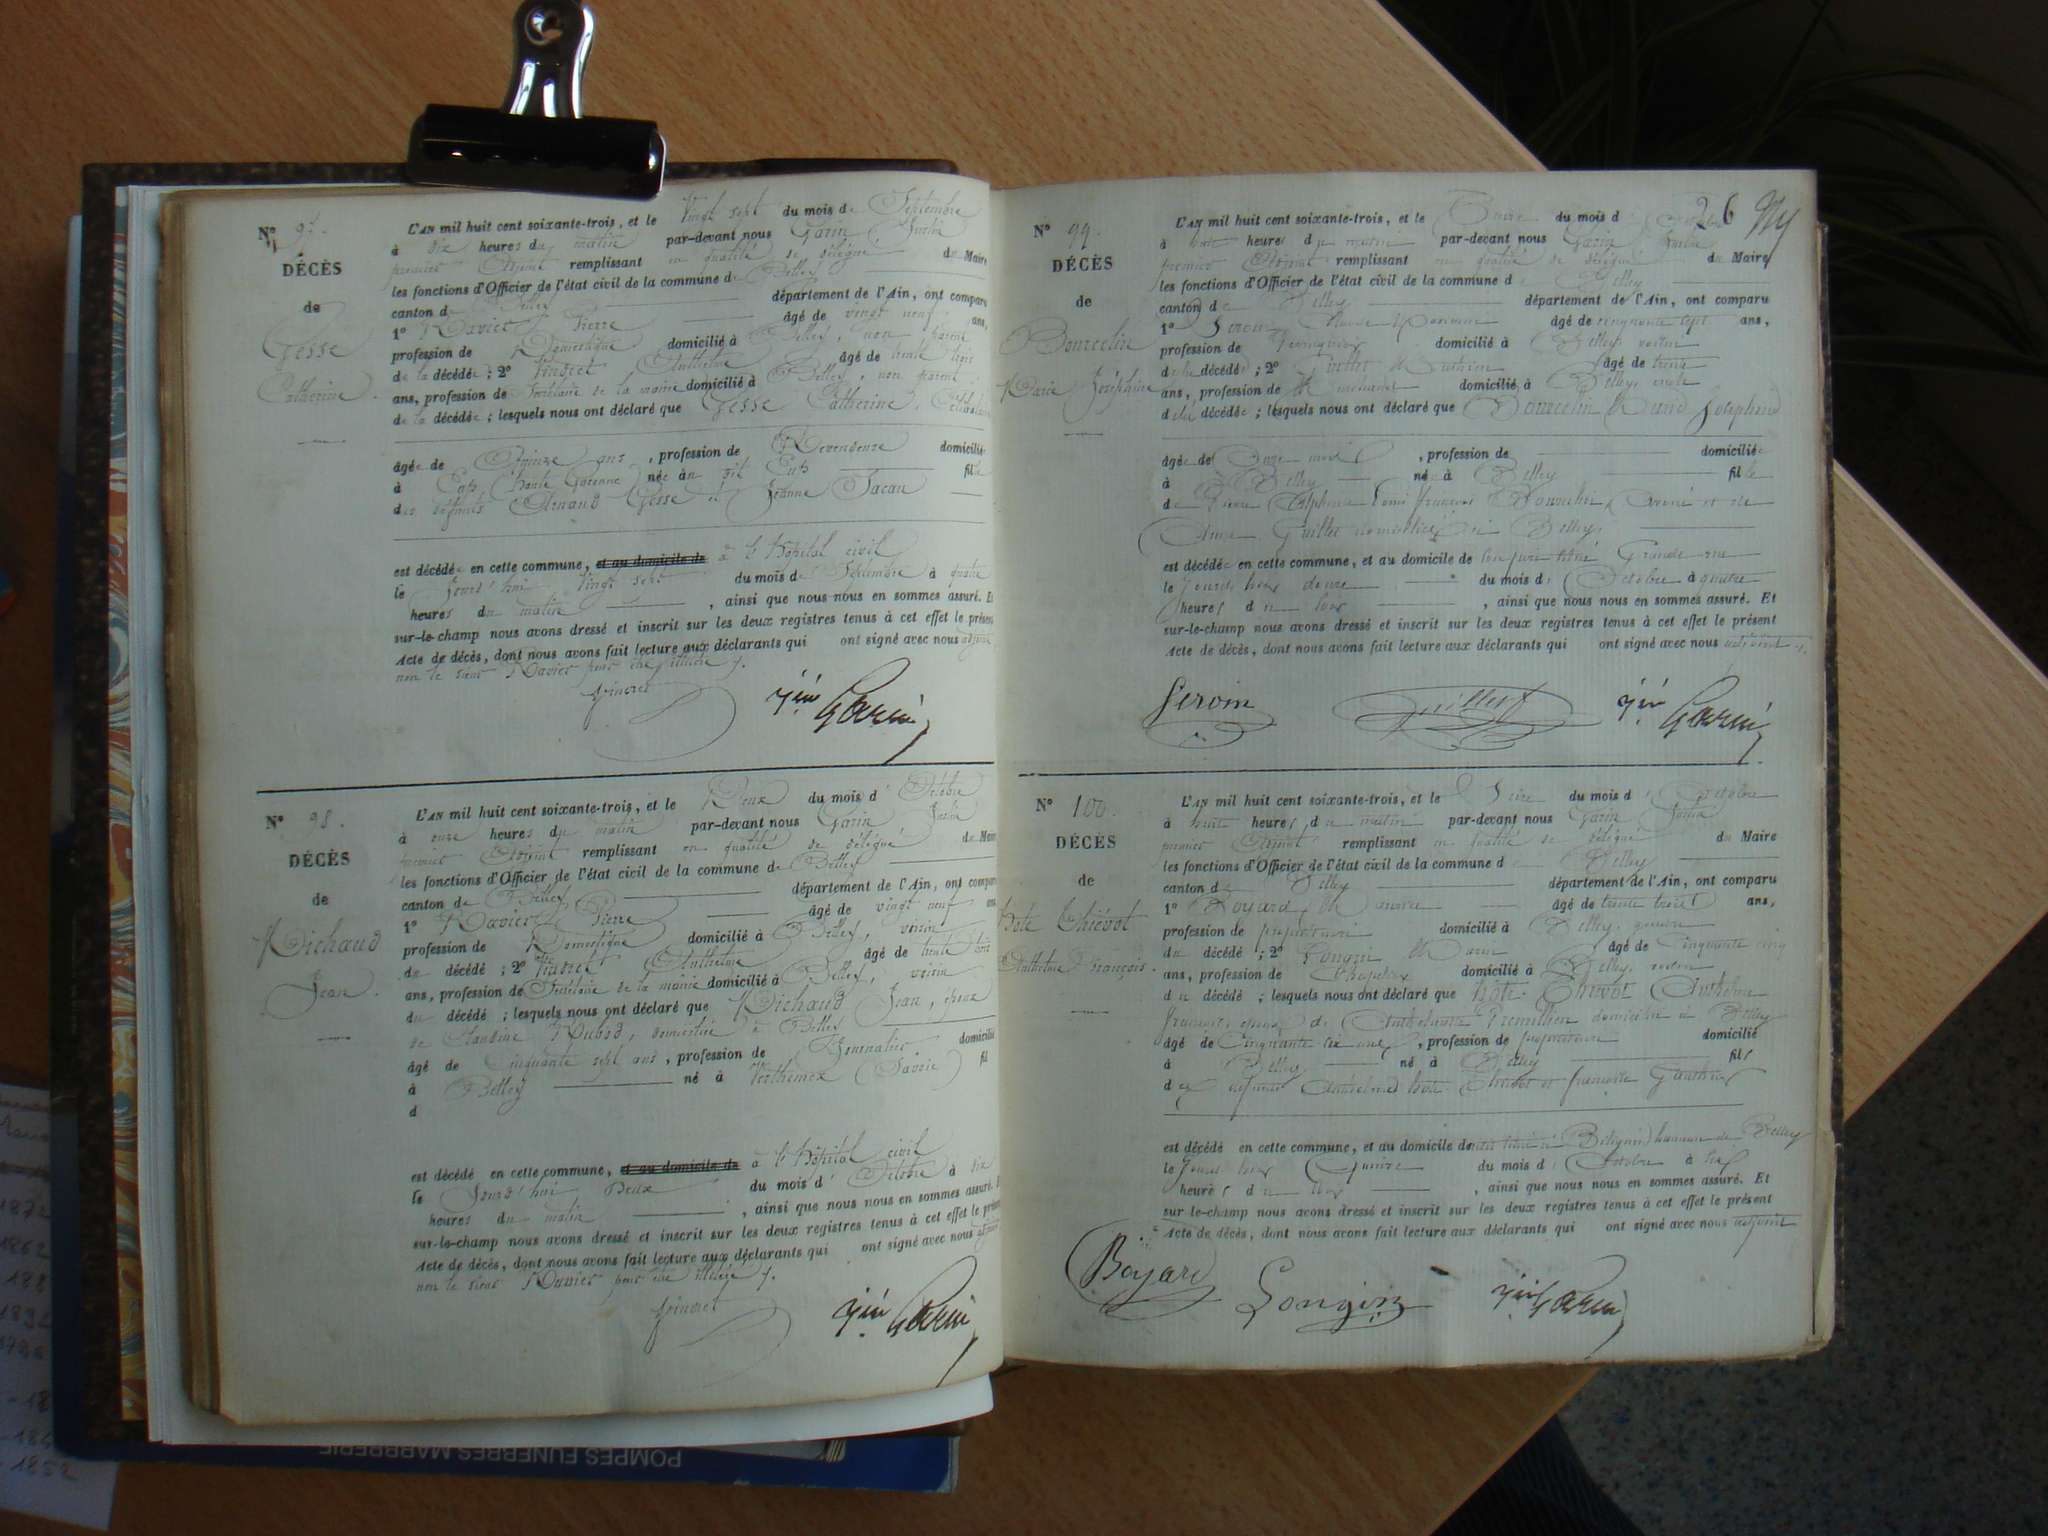 N° 97.
DÉCÈS
de
Gesse
Catherine.
L'AN mil huit cent soixante-trois, et le Vingt sept du mois de Septembre
à dix heures du matin par-devant nous Garin Julin
premier Adjoint remplissant en qualité de délégué du Maire
les fonctions d'Officier de l'état civil de la commune de Belley
canton de Belley département de l'Ain, ont comparu
1° Ravier Pierre âgé de vingt neuf ans,
profession de Domestique domicilié à Belley, non parent
de la décédée ; 2° Vindret Anthelme âgé de trente trois
ans, profession de Secrétaire de la mairie domicilié à Belley, non parent
de la décédée ; lesquels nous ont déclaré que Gesse Catherine, Célibataire
âgée de Quinze ans, profession de Revendeuse domiciliée
à (Haute Garonne) née au dit fille
des défunts Arnaud Gesse et Jeanne Sacau
est décédée en cette commune, et au domicile de à l'hôpital civil
le Jourd'hui Vingt sept du mois de Septembre à quatre
heures du matin, ainsi que nous nous en sommes assuré. Et
sur-le-champ nous avons dressé et inscrit sur les deux registres tenus à cet effet le présent
Acte de décès, dont nous avons fait lecture aux déclarants qui ont signé avec nous adjoint
non le sieur Ravier pour être illettré
Vindret
Garin
N° 98.
DÉCÈS
de
Michaud
Jean.
L'AN mil huit cent soixante-trois, et le Deux du mois d'Octobre
à onze heures du matin par-devant nous Garin Julin
premier Adjoint remplissant en qualité de délégué du Maire
les fonctions d'Officier de l'état civil de la commune de Belley
canton de Belley département de l'Ain, ont comparu
1° Ravier Pierre âgé de vingt neuf ans
profession de Domestique domicilié à Belley, voisin
du décédé ; 2° Vindret Anthelme âgé de trente trois
ans, profession de Secrétaire de la mairie domicilié à Belley, voisin
du décédé ; lesquels nous ont déclaré que Michaud Jean, époux
de Claudine domiciliée à Belley
âgé de Cinquante sept ans, profession de Journalier domicilié
à Belley né à Verthemex (Savoie) fil
d
est décédé en cette commune, et au domicile de à l'hôpital civil
le Jourd'hui Deux du mois d'Octobre à dix
heures du matin, ainsi que nous nous en sommes assuré. Et
sur-le-champ nous avons dressé et inscrit sur les deux registres tenus à cet effet le présent
Acte de décès, dont nous avons fait lecture aux déclarants qui ont signé avec nous adjoint
non le sieur Ravier pour être illettré
Vindret
Garin
26
N° 99.
DÉCÈS
de
Bourcelin
Marie Joséphine
L'AN mil huit cent soixante-trois, et le du mois d'Octobre
à huit heures du matin par-devant nous Garin Julin
premier Adjoint remplissant en qualité de délégué du Maire
les fonctions d'Officier de l'état civil de la commune de Belley
canton de Belley département de l'Ain, ont comparu
1° Seroin âgé de cinquante sept ans,
profession de domicilié à Belley voisin
de la décédée ; 2° Guillet Mathieu âgé de trente
ans, profession de domicilié à Belley
de la décédée ; lesquels nous ont déclaré que Bourcelin Marie Joséphine
âgée de Onze mois, profession de domiciliée
à Belley née à Belley fille
de Pierre Alphonse Louis François Bourcelin et de
Guillet domiciliés à Belley,
est décédée en cette commune, et au domicile de son père situé Grande rue
le Jourd'hui douze du mois d'Octobre à quatre
heures du soir, ainsi que nous nous en sommes assuré. Et
sur-le-champ nous avons dressé et inscrit sur les deux registres tenus à cet effet le présent
Acte de décès, dont nous avons fait lecture aux déclarants qui ont signé avec nous adjoint
Seroin Guillet Garin
N° 100.
DÉCÈS
de
hote Thiévot
Anthelme François.
L'AN mil huit cent soixante-trois, et le Seize du mois d'Octobre
à huit heures du matin par-devant nous Garin Julin
premier Adjoint remplissant en qualité de délégué du Maire
les fonctions d'Officier de l'état civil de la commune de Belley
canton de Belley département de l'Ain, ont comparu
1° Boyard âgé de trente trois ans,
profession de propriétaire domicilié à Belley
du décédé ; 2° Longin âgé de cinquante cinq
ans, profession de Chapelier domicilié à Belley, voisin
du décédé ; lesquels nous ont déclaré que hote Thiévot Anthelme
François époux de Anthelmette domicilié à Belley
âgé de Cinquante six ans, profession de propriétaire domicilié
à Belley né à Belley fils
des défunts Anthelme hote Thiévot et françoise Gauthier
est décédé en cette commune, et au domicile de hameau de Belley
le Jourd'hier Quinze du mois d'Octobre à six
heures du soir, ainsi que nous nous en sommes assuré. Et
sur-le-champ nous avons dressé et inscrit sur les deux registres tenus à cet effet le présent
Acte de décès, dont nous avons fait lecture aux déclarants qui ont signé avec nous adjoint
Boyard Longin Garin
POMPES FUNEBRES MARBRERIE